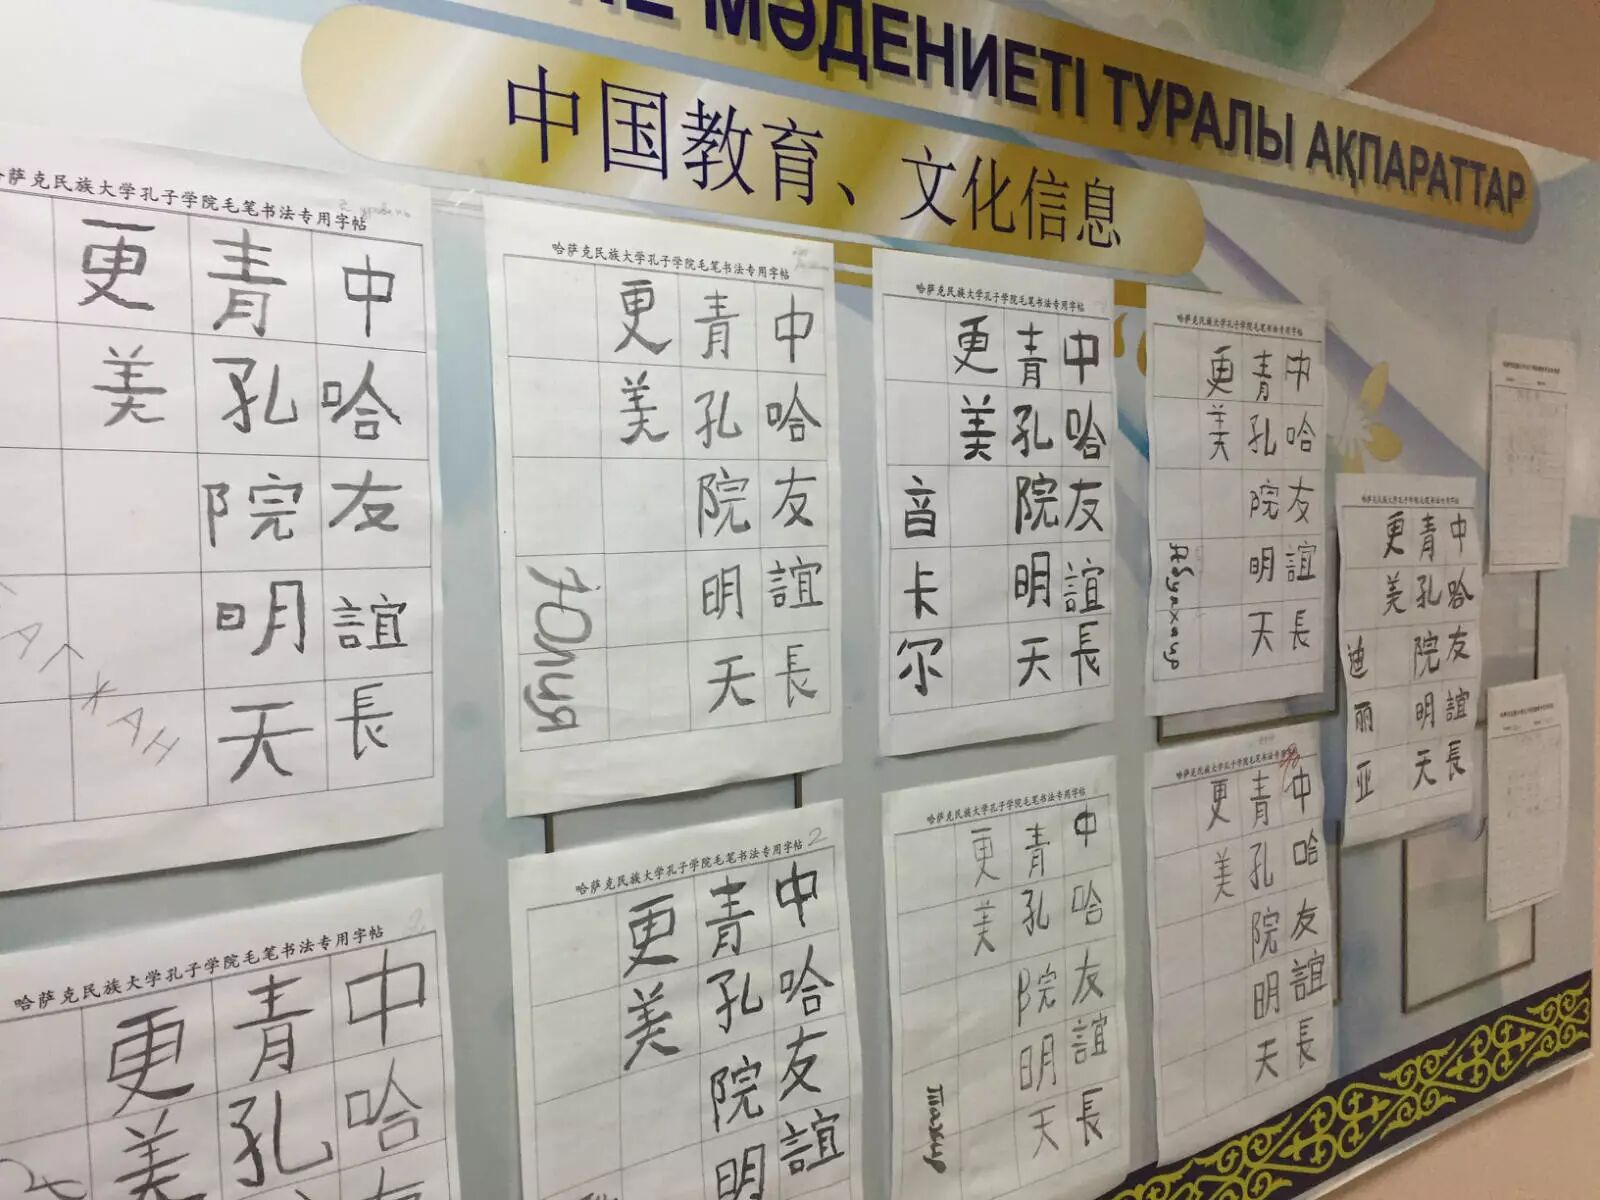 МӘДЕНИЕТІ ТУРАЛЫ АҚПАРАТТАР
中国教育、文化信息
哈萨克民族大学孔子学院毛笔书法专用字帖
中哈友誼長
青孔院明天
更美
哈萨克民族大学孔子学院毛笔书法专用字帖
中哈友誼長
青孔院明天
更美
Юлия
哈萨克民族大学孔子学院毛笔书法专用字帖
中哈友誼長
青孔院明天
更美
音卡尔
哈萨克民族大学孔子学院毛笔书法专用字帖
中哈友誼長
青孔院明天
更美
中哈友誼長
青孔院明天
更美
迪丽亚
哈萨克民族大学孔子学院毛笔书法专用字帖
中哈友
青孔
更美
哈萨克民族大学孔子学院毛笔书法专用字帖
2
中哈友誼
青孔院明
更美
哈萨克民族大学孔子学院毛笔书法专用字帖
中哈友誼長
青孔院明天
更美
哈萨克民族大学孔子学院毛笔书法专用
中哈友誼長
青孔院明天
更美